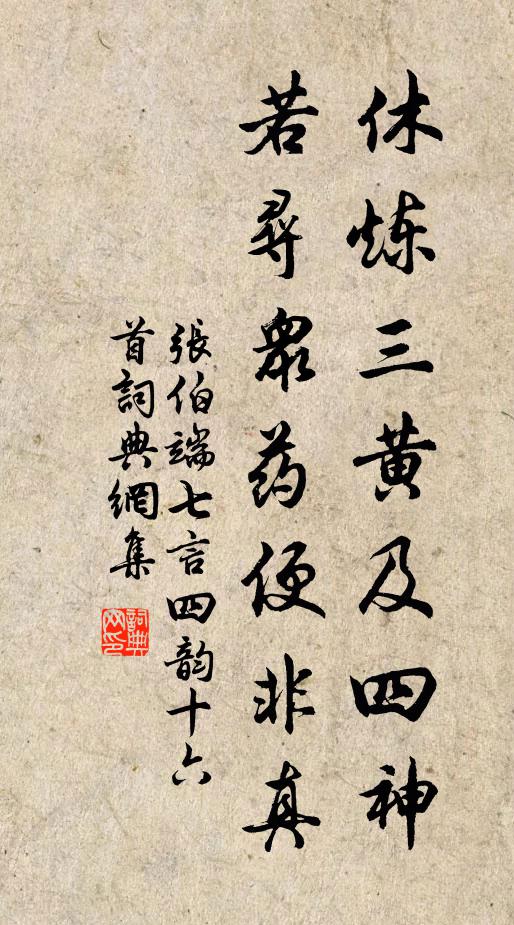 休炼三黄及四神
若尋眾药便非真
張伯端七言四韵十六
首詞典網集
詞典
网印